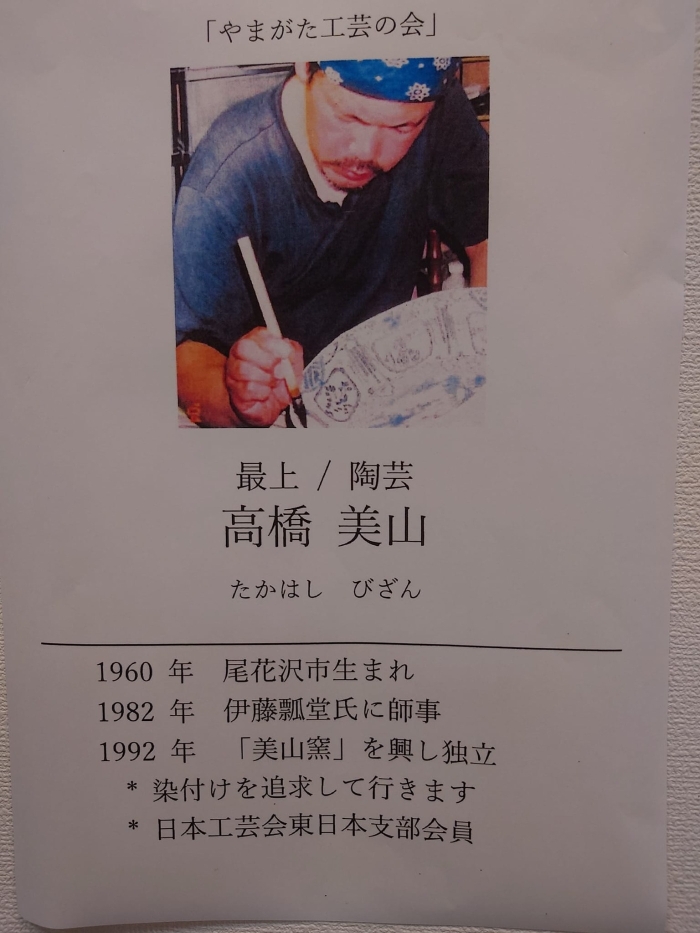 「やまがた工芸の会」
最上 / 陶芸
高橋 美山
たかはし びざん
1960 年 尾花沢市生まれ
1982 年 伊藤瓢堂氏に師事
1992 年 「美山窯」を興し独立
* 染付けを追求して行きます
* 日本工芸会東日本支部会員